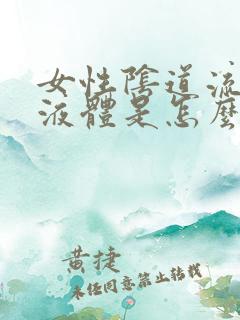 女性陰道流
液體是怎麼
黄捷
未任同意禁止转载